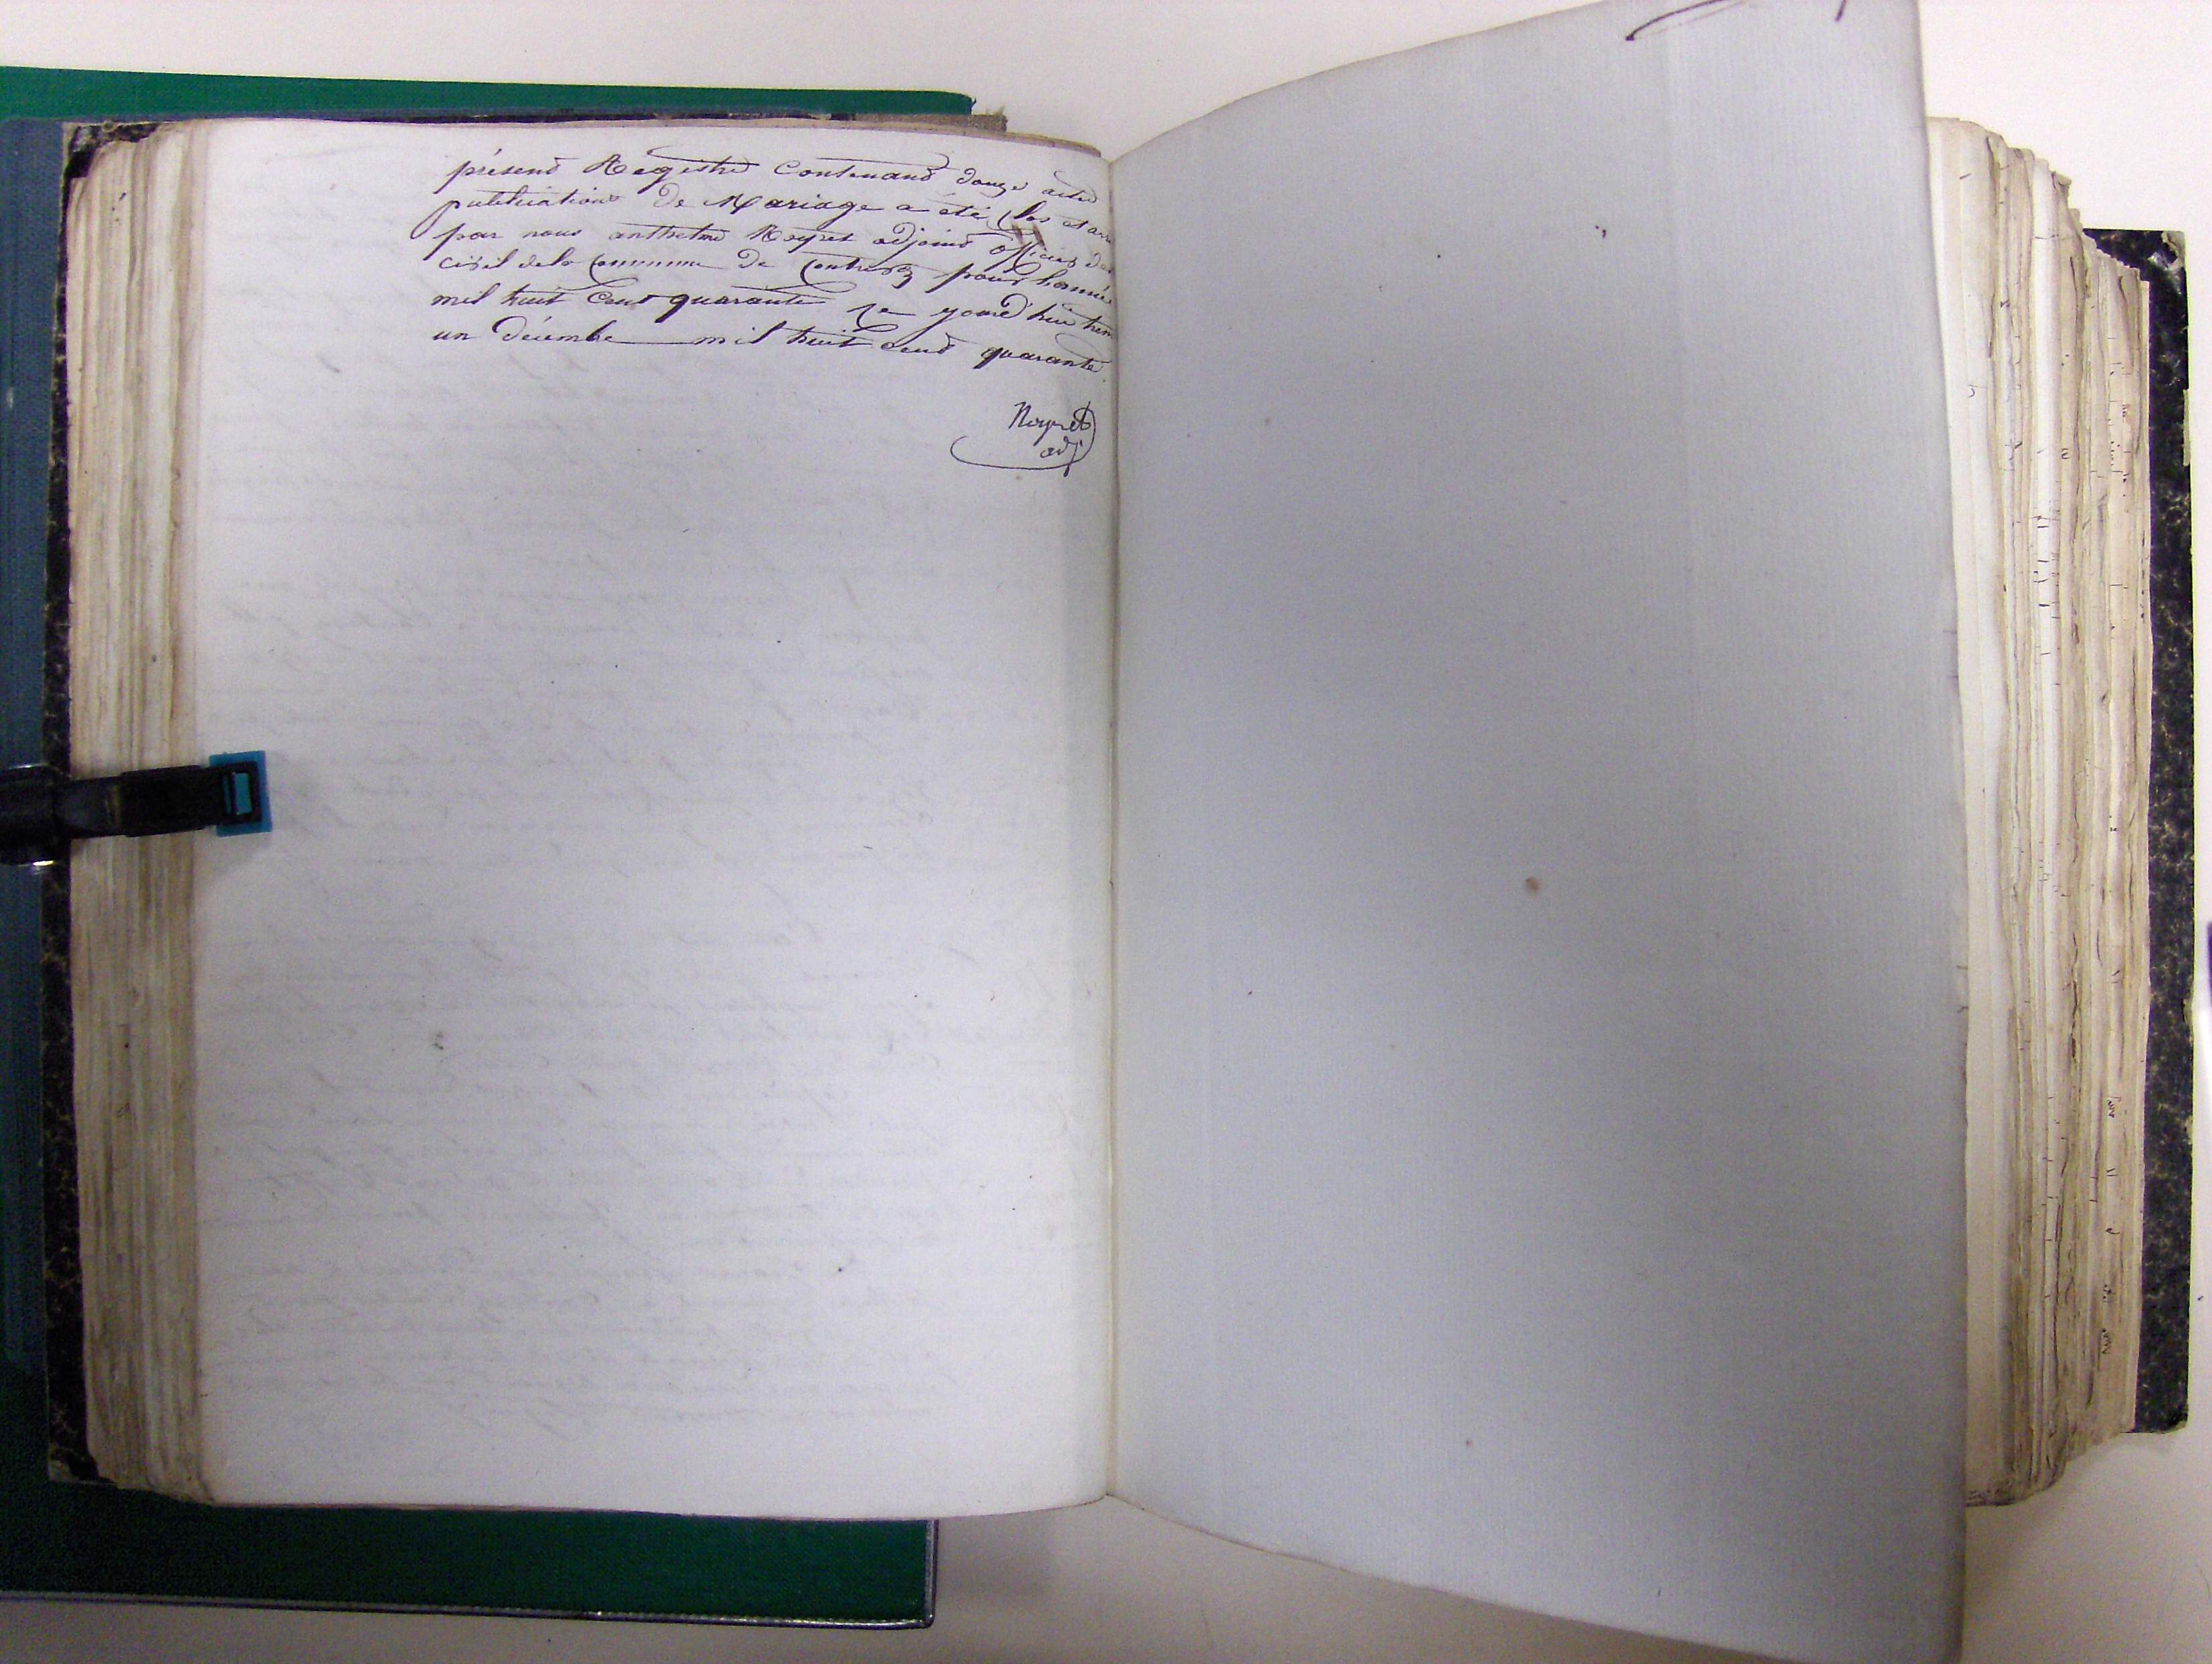 présent Registre Contenant douze actes
publications de Mariage a été Clos et arre
par nous anthelme Noyret adjoint officier de
civil dela Commune de Contrevoz pour lannée
mil huit Cent quarante ce jourd'hui tren
un décembre mil huit cent quarante.
Noyret
adj